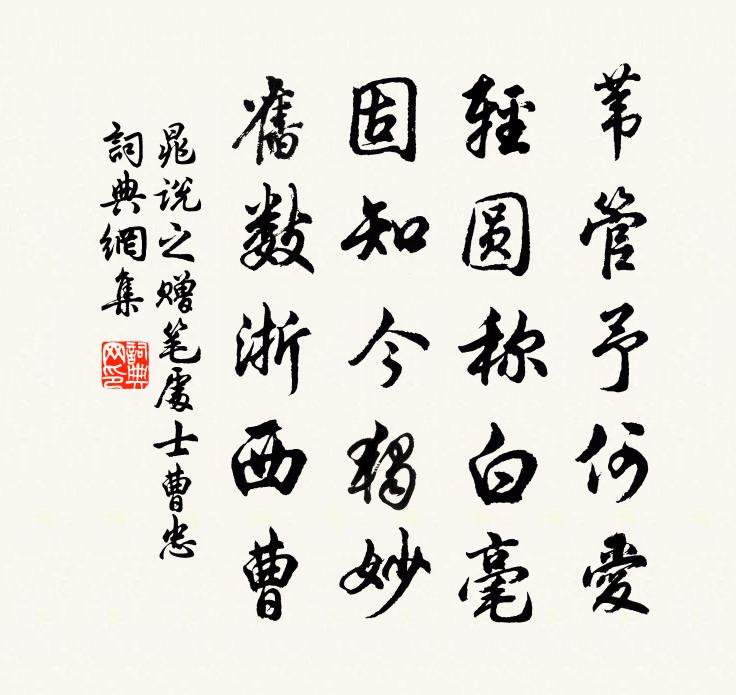 苇管予何爱
轻圆称白毫
固知今独妙
旧数浙西曹
晁说之赠笔处士曹忠
词典网集
词典网印